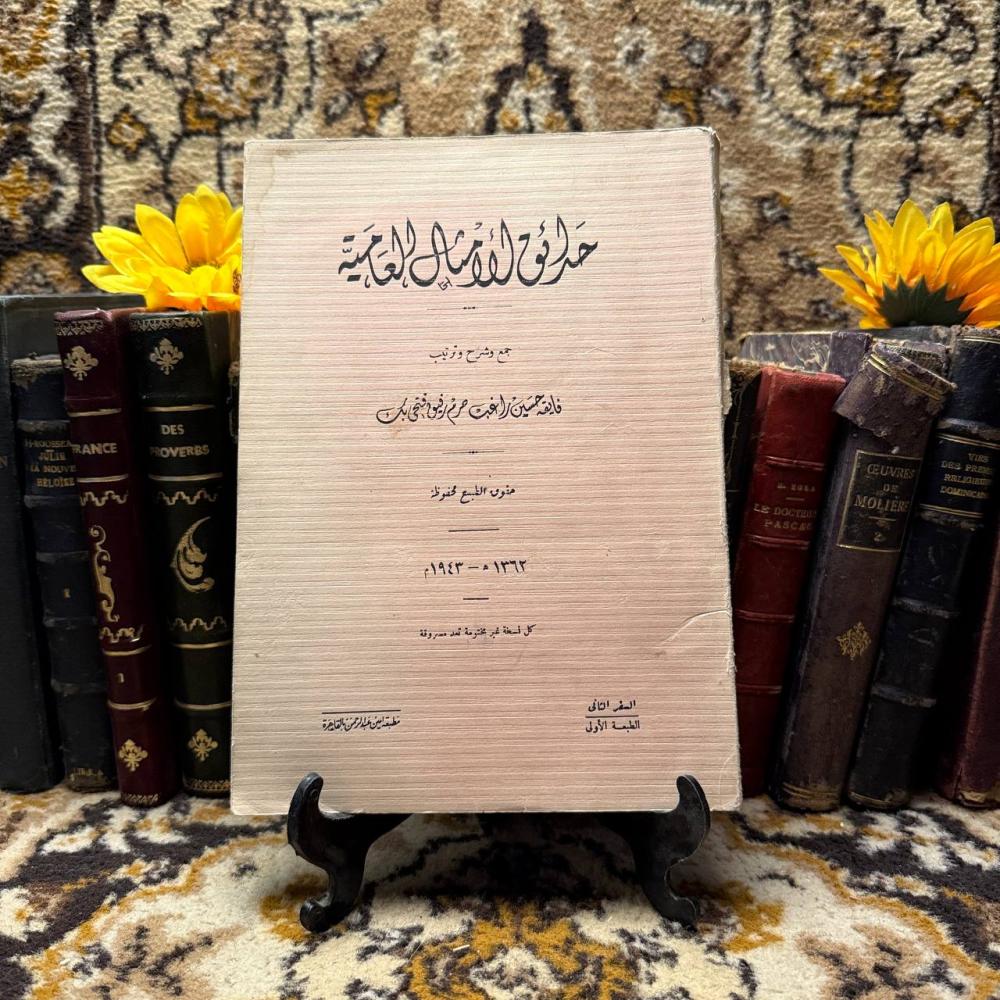 حدائق الأمثال العامية
جمع وشرح وترتيب
فايقه حسين راغب حرم رفيق فتحي بك
حقوق الطبع محفوظة
١٣٦٢ ه – ١٩٤٣ م
كل نسخة غير مختومة تعد مسروقة
السفر الثانى
الطبعة الأولى
مطبعة امين عبد الرحمن بالقاهرة
JULIE
HÉLOÏSE
FRANCE
1
DES
PROVERBES
LE DOCTEUR
PASCAL
ŒUVRES
DE
MOLIÈRE
2
VIES
DES PREM
RELIGIEUS
DOMINICAINE